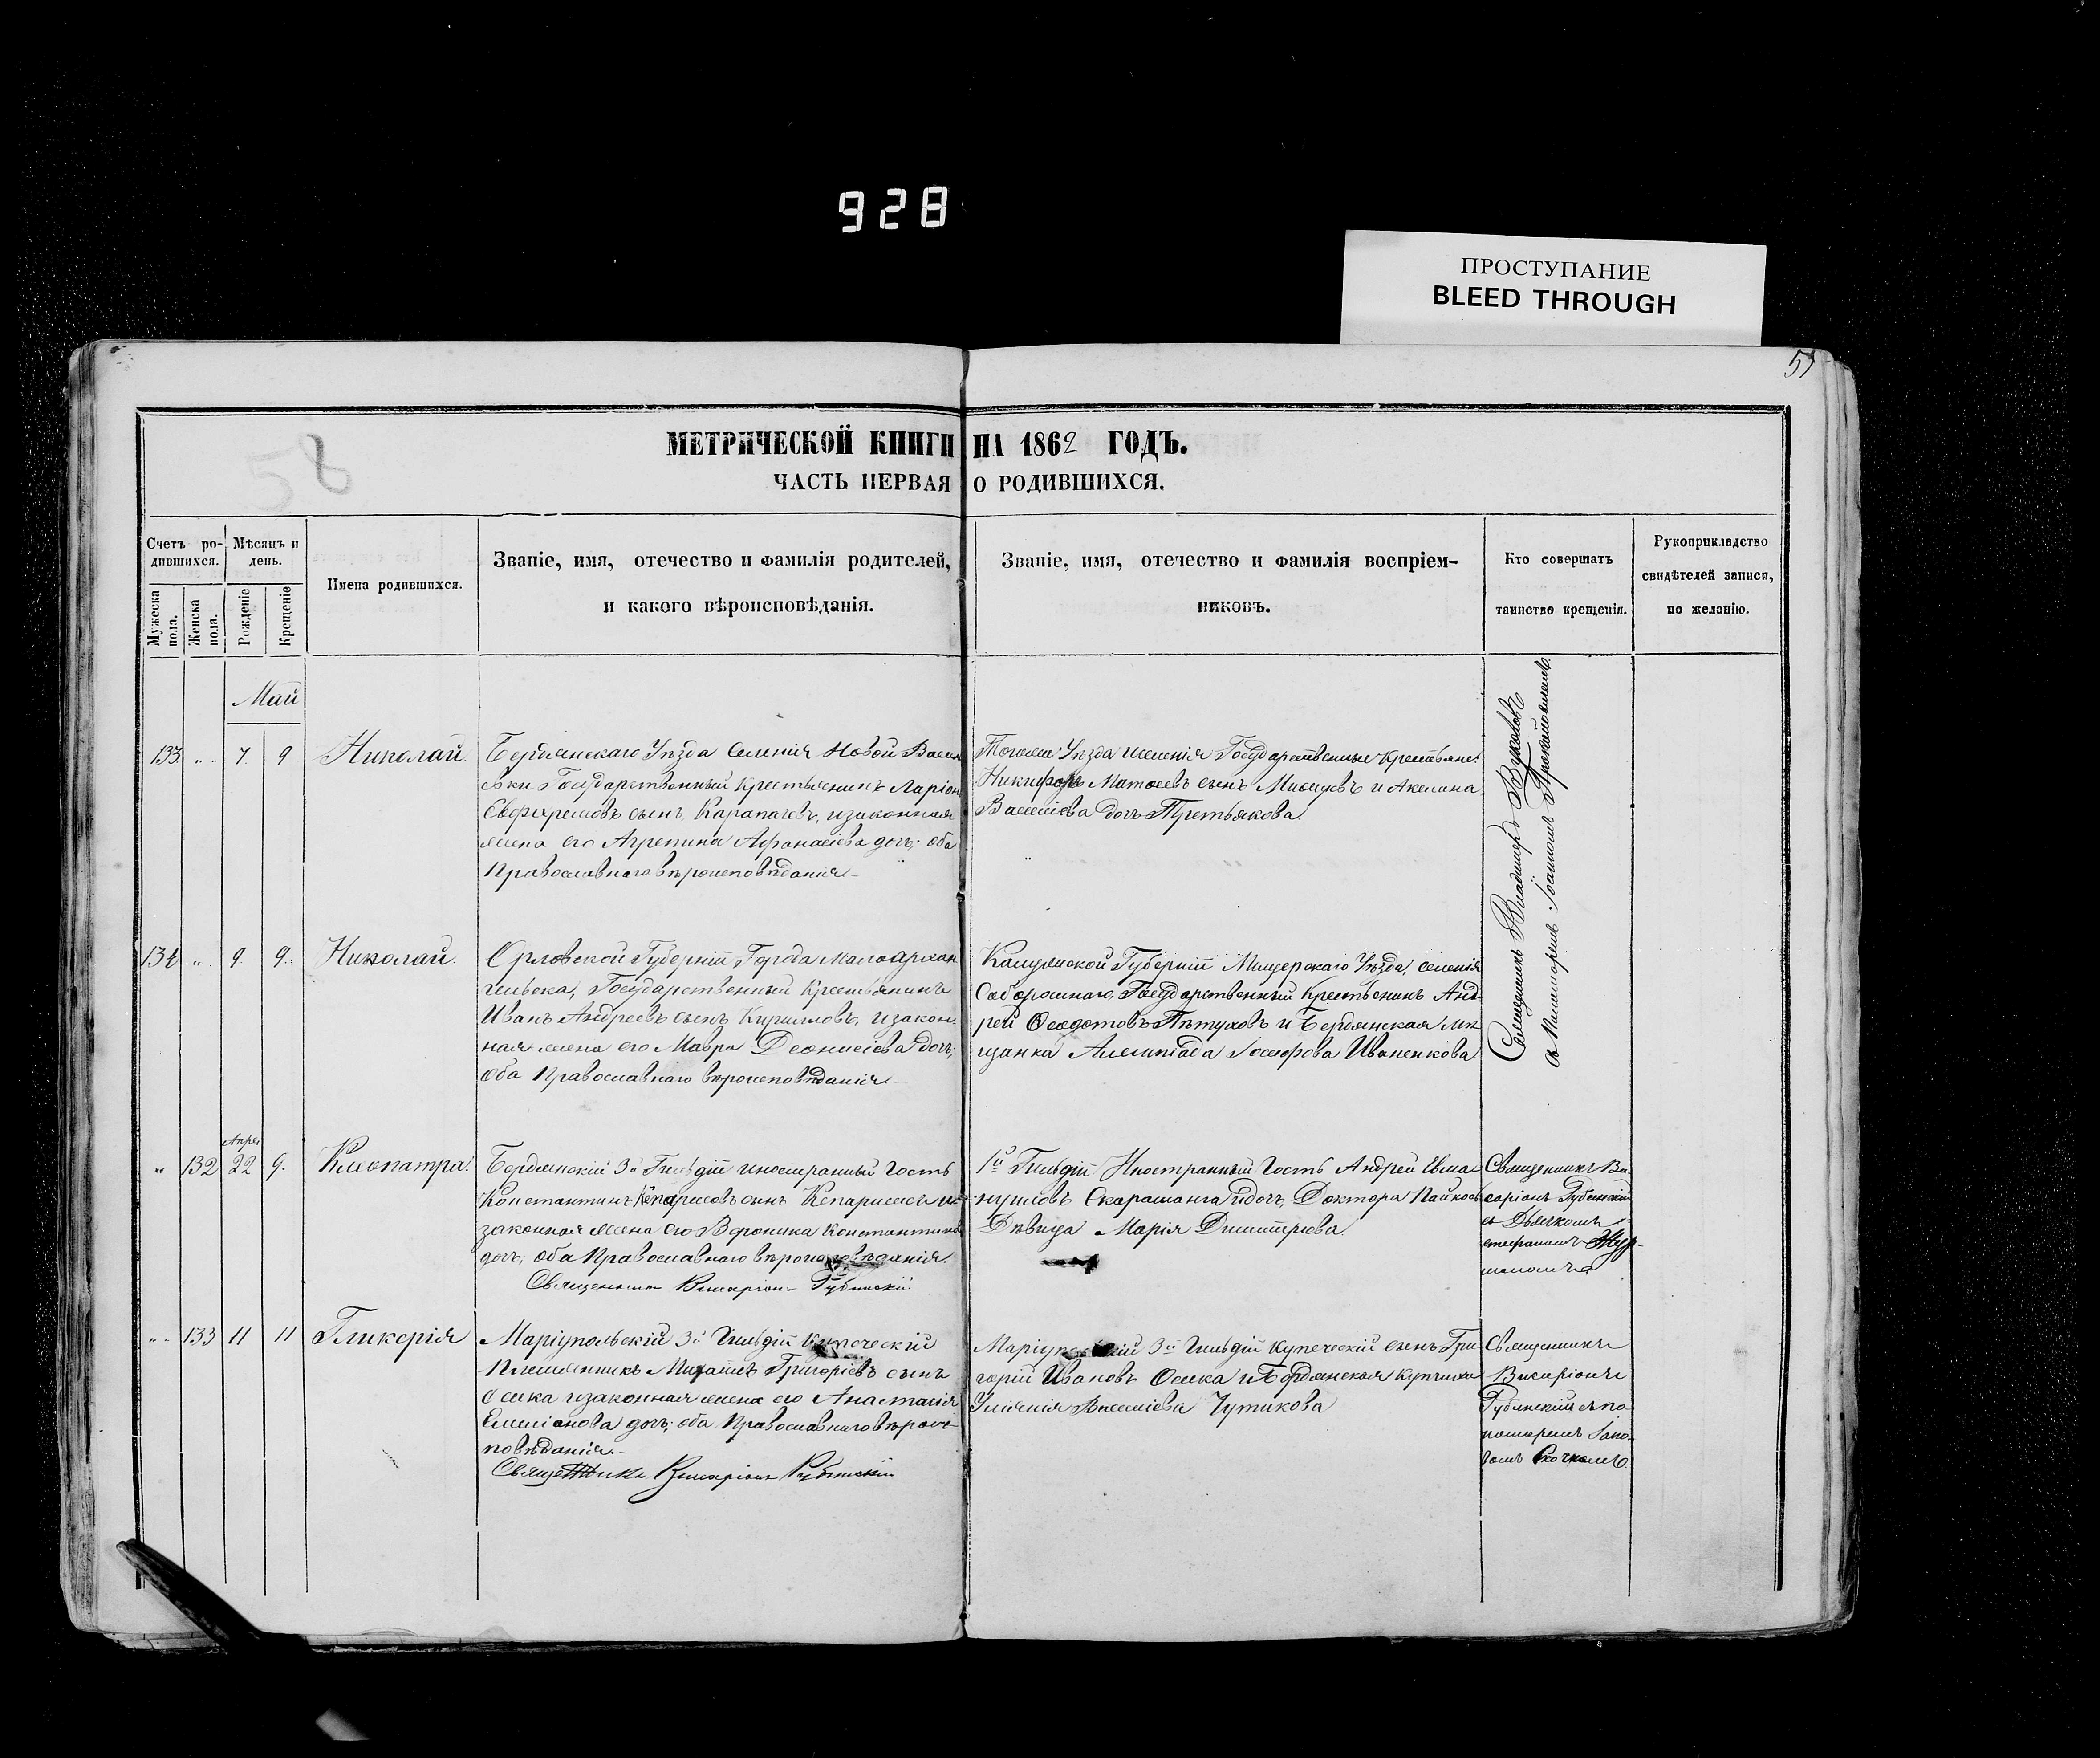 928
ПРОСТУПАНИЕ
BLEED THROUGH
58
МЕТРИЧЕСКОЙ КНИГИ НА 1862 ГОДЪ.
ЧАСТЬ ПЕРВАЯ О РОДИВШИХСЯ.
Счетъ ро-
дившихся.
Мужеска
пола.
Женска
пола.
Мѣсяцъ и
день.
Рожденіе
Крещеніе
Имена родившихся.
Званіе, имя, отечество и фамилія родителей,
и какого вѣроисповѣданія.
Званіе, имя, отечество и фамилія воспріем-
никовъ.
Кто совершатъ
таинство крещенія.
Рукоприкладство
свидѣтелей записи,
по желанію.
Май
133 7. 9 Николай.
Бердянскаго Уѣзда Селенія Новой Васил
евки Государственный Крестьянинъ Ларіон
сынъ Карапачевъ, и законная
жена его Агрепина Афанасіева дочь; оба
Православнаго вѣроисповѣданія
Тогоже Уѣзда и селенія Государственные Крестьяне:
Никифоръ Матвеевъ сынъ и Акелина
Васеліева дочь Третьякова
Священникъ Владимиръ
съ Паномаремъ Іоанномъ
134 9. 9. Николай.
Орловской Губерніи Города Малоархан
гельска, Государственный Крестьянинъ
Иванъ Андреевъ сынъ Кириловъ, и закон.
ная жена его Мавра Деонисіева дочь;
оба Православнаго вѣроисповѣданія
Калужской Губерніи Уѣзда, селенія
Государственный Крестьянинъ Анд-
рей Ѳеодотовъ Пѣтуховъ и Бердянская мѣ
щанка Іосифова Иваненкова
132 Апрел 22 9. Клеопатра.
Бердянскій 3й Гильдіи иностранный Гость
Константинъ Кепарисовъ сынъ и
законная жена его Вероника Константинова
дочь, оба Православнаго вѣроисповѣданія.
Священникъ Висаріонъ Губинскій
1й Гильдіи Иностранный Гость Андрей Ема
нуиловъ Скараманга и дочь Доктора
Дѣвица Марія Димитріова
Священникъ Ви
саріонъ Губинскій
съ Дьячкомъ
133 11 11 Гликерія
Маріупольскій 3й Гильдіи Купеческій
Племянникъ Михаилъ Григоріевъ сынъ
и законная жена его Анастасія
Емиліанова дочь; оба Православнаго вѣроис-
повѣданія.
Священникъ Висаріонъ Губинскій
Маріупольскій 3й Гильдіи Купеческій сынъ Гри
горій Ивановъ и Бердянская Купчиха
Васеліева Чутикова
Священникъ
Висаріонъ
Губинскій съ по-